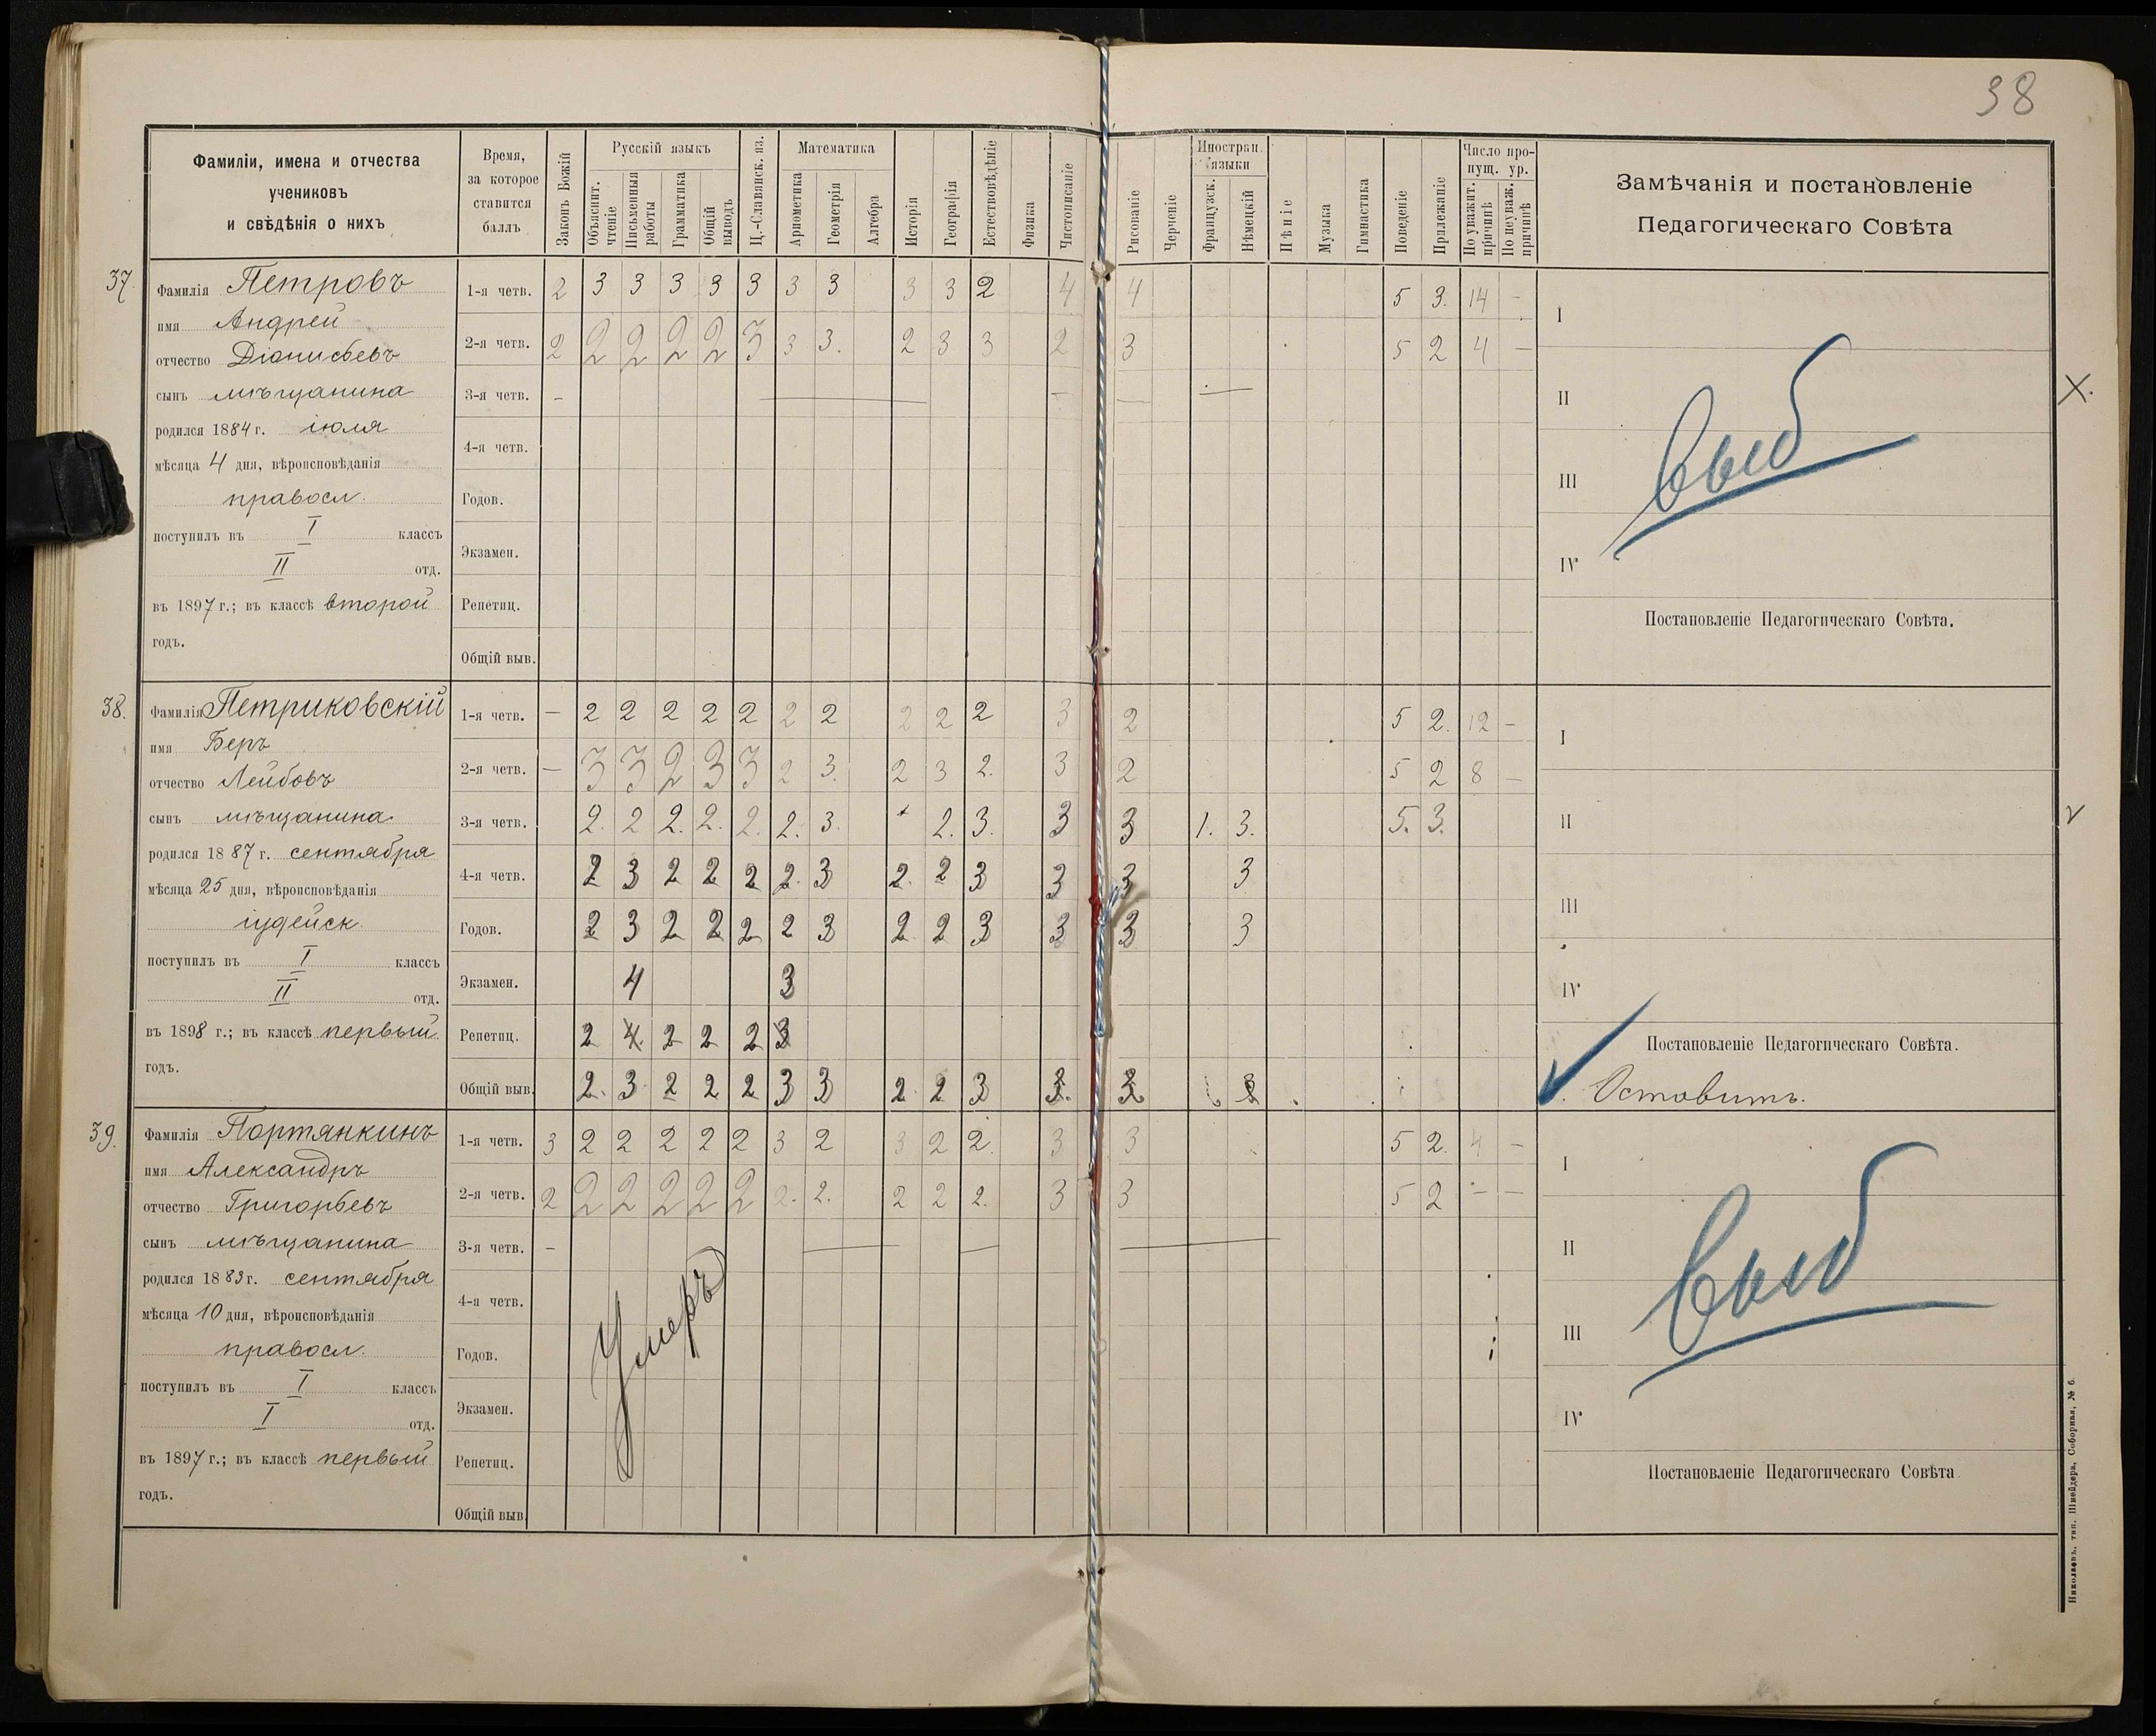 38
Фамиліи, имена и отчества
учениковъ
и свѣдѣнія о нихъ
Время,
за которое
ставится
баллъ
Законъ Божій
Русскій языкъ
Объяснит. чтеніе
Письменныя работы
Грамматика
Общій выводъ
Ц.-Славянск. яз.
Математика
Ариѳметика
Геометрія
Алгебра
Исторія
Географія
Естествовѣдѣніе
Физика
Чистописаніе
Рисованіе
Черченіе
Иностран. языки
Французск.
Нѣмецкій
Пѣніе
Музыка
Гимнастика
Поведеніе
Прилежаніе
Число пропущ. ур.
По уважит. причинѣ
По неуваж. причинѣ
Замѣчанія и постановленіе
Педагогическаго Совѣта
37.
Фамилія Петровъ
имя Андрей
отчество Діонисьевъ
сынъ мѣщанина
родился 1884 г. іюля
мѣсяца 4 дня, вѣроисповѣданія
правосл.
поступилъ въ I классъ
II отд.
въ 1897 г.; въ классѣ второй
годъ.
1-я четв. 2 3 3 3 3 3 3 3 3 3 2 4 4 5 3. 14 -
2-я четв. 2 2 2 2 2 3 3 3. 2 3 3 2 3 5 2 4 -
3-я четв. -
4-я четв.
Годов.
Экзамен.
Репетиц.
Общій выв.
I
II
III
IV
выб
X.
Постановленіе Педагогическаго Совѣта.
38.
Фамилія Петриковскій
имя Беръ
отчество Лейбовъ
сынъ мѣщанина
родился 1887 г. сентября
мѣсяца 25 дня, вѣроисповѣданія
іудейск.
поступилъ въ I классъ
II отд.
въ 1898 г.; въ классѣ первый
годъ.
1-я четв. - 2 2 2 2 2 2 2 2 2 2 3 2 5 2. 12 -
2-я четв. - 3 3 2 3 3 2 3. 2 3 2. 3 2 5 2 8 -
3-я четв. 2. 2 2. 2. 2. 2. 3. 2. 3. 3 3 1. 3. 5. 3.
4-я четв. 2 3 2 2 2 2. 3 2. 2 3 3 3 3
Годов. 2 3 2 2 2 2 3 2 2 3 3 3 3
Экзамен. 4 3
Репетиц. 2 4. 2 2 2 3
Общій выв. 2. 3. 2 2 2 3 3 2. 2 3 3. 3 3
I
II
III
IV
Постановленіе Педагогическаго Совѣта.
Оставить.
39.
Фамилія Портянкинъ
имя Александръ
отчество Григорьевъ
сынъ мѣщанина
родился 1883 г. сентября
мѣсяца 10 дня, вѣроисповѣданія
правосл.
поступилъ въ I классъ
I отд.
въ 1897 г.; въ классѣ первый
годъ.
1-я четв. 3 2 2 2 2 2 3 2 3 2 2. 3 3 5 2. 4 -
2-я четв. 2 2 2 2 2 2 2. 2. 2 2 2. 3 3 5 2 - -
3-я четв. -
4-я четв.
Годов.
Экзамен.
Репетиц.
Общій выв.
Умеръ
I
II
III
IV
выб
Постановленіе Педагогическаго Совѣта
Николаевъ, тип. Шнейдера, Соборная, № 6